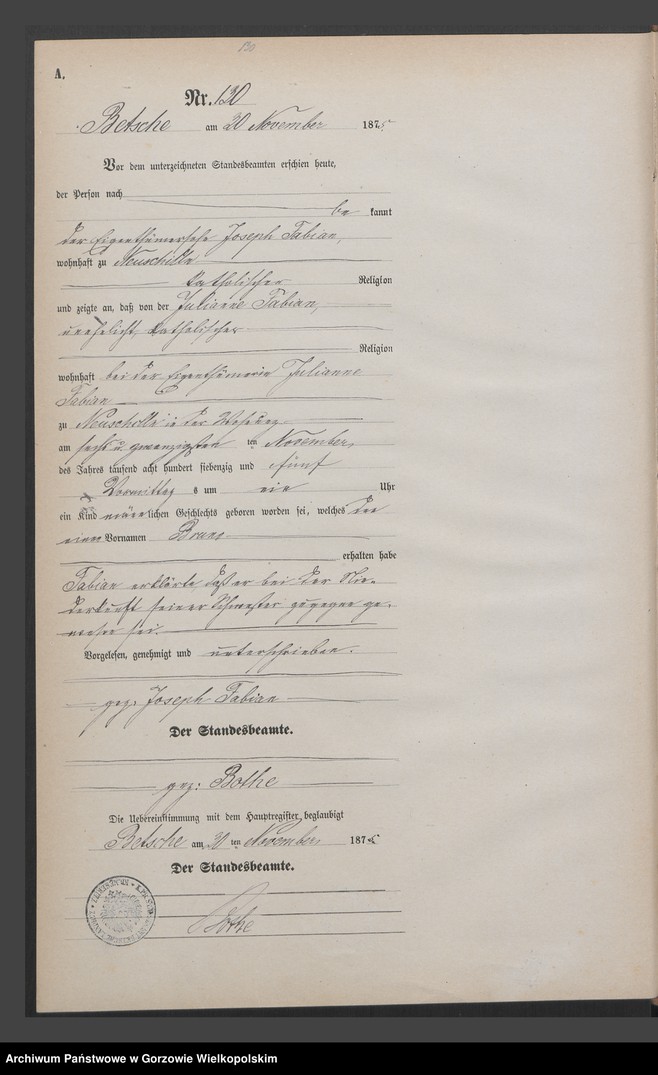 130
A.
Nr. 130
Betsche am 30 November 1875
Vor dem unterzeichneten Standesbeamten erschien heute,
der Person nach
be kannt
der Eigenthümersohn Joseph Fabian,
wohnhaft zu
katholischer Religion
und zeigte an, daß von der Julianne Fabian,
unehelicht, katholischer
Religion
wohnhaft bei der Eigenthümerin Julianne
Fabian
zu in der Wohnung
am sechs u zwanzigsten ten November
des Jahres tausend acht hundert siebenzig und fünf
Vormittag s um ein Uhr
ein Kind männlichen Geschlechts geboren worden sei, welches den
einen Vornamen Bruno
erhalten habe
Fabian erklärte daß er bei der Nie-
derkunft seiner Schwester zugegen ge-
wesen sei.
Vorgelesen, genehmigt und unterschrieben.
gez. Joseph Fabian
Der Standesbeamte.
gez: Bothe
Die Uebereinstimmung mit dem Hauptregister beglaubigt
Betsche am 30 ten November 1875
Der Standesbeamte.
Bothe
Archiwum Państwowe w Gorzowie Wielkopolskim